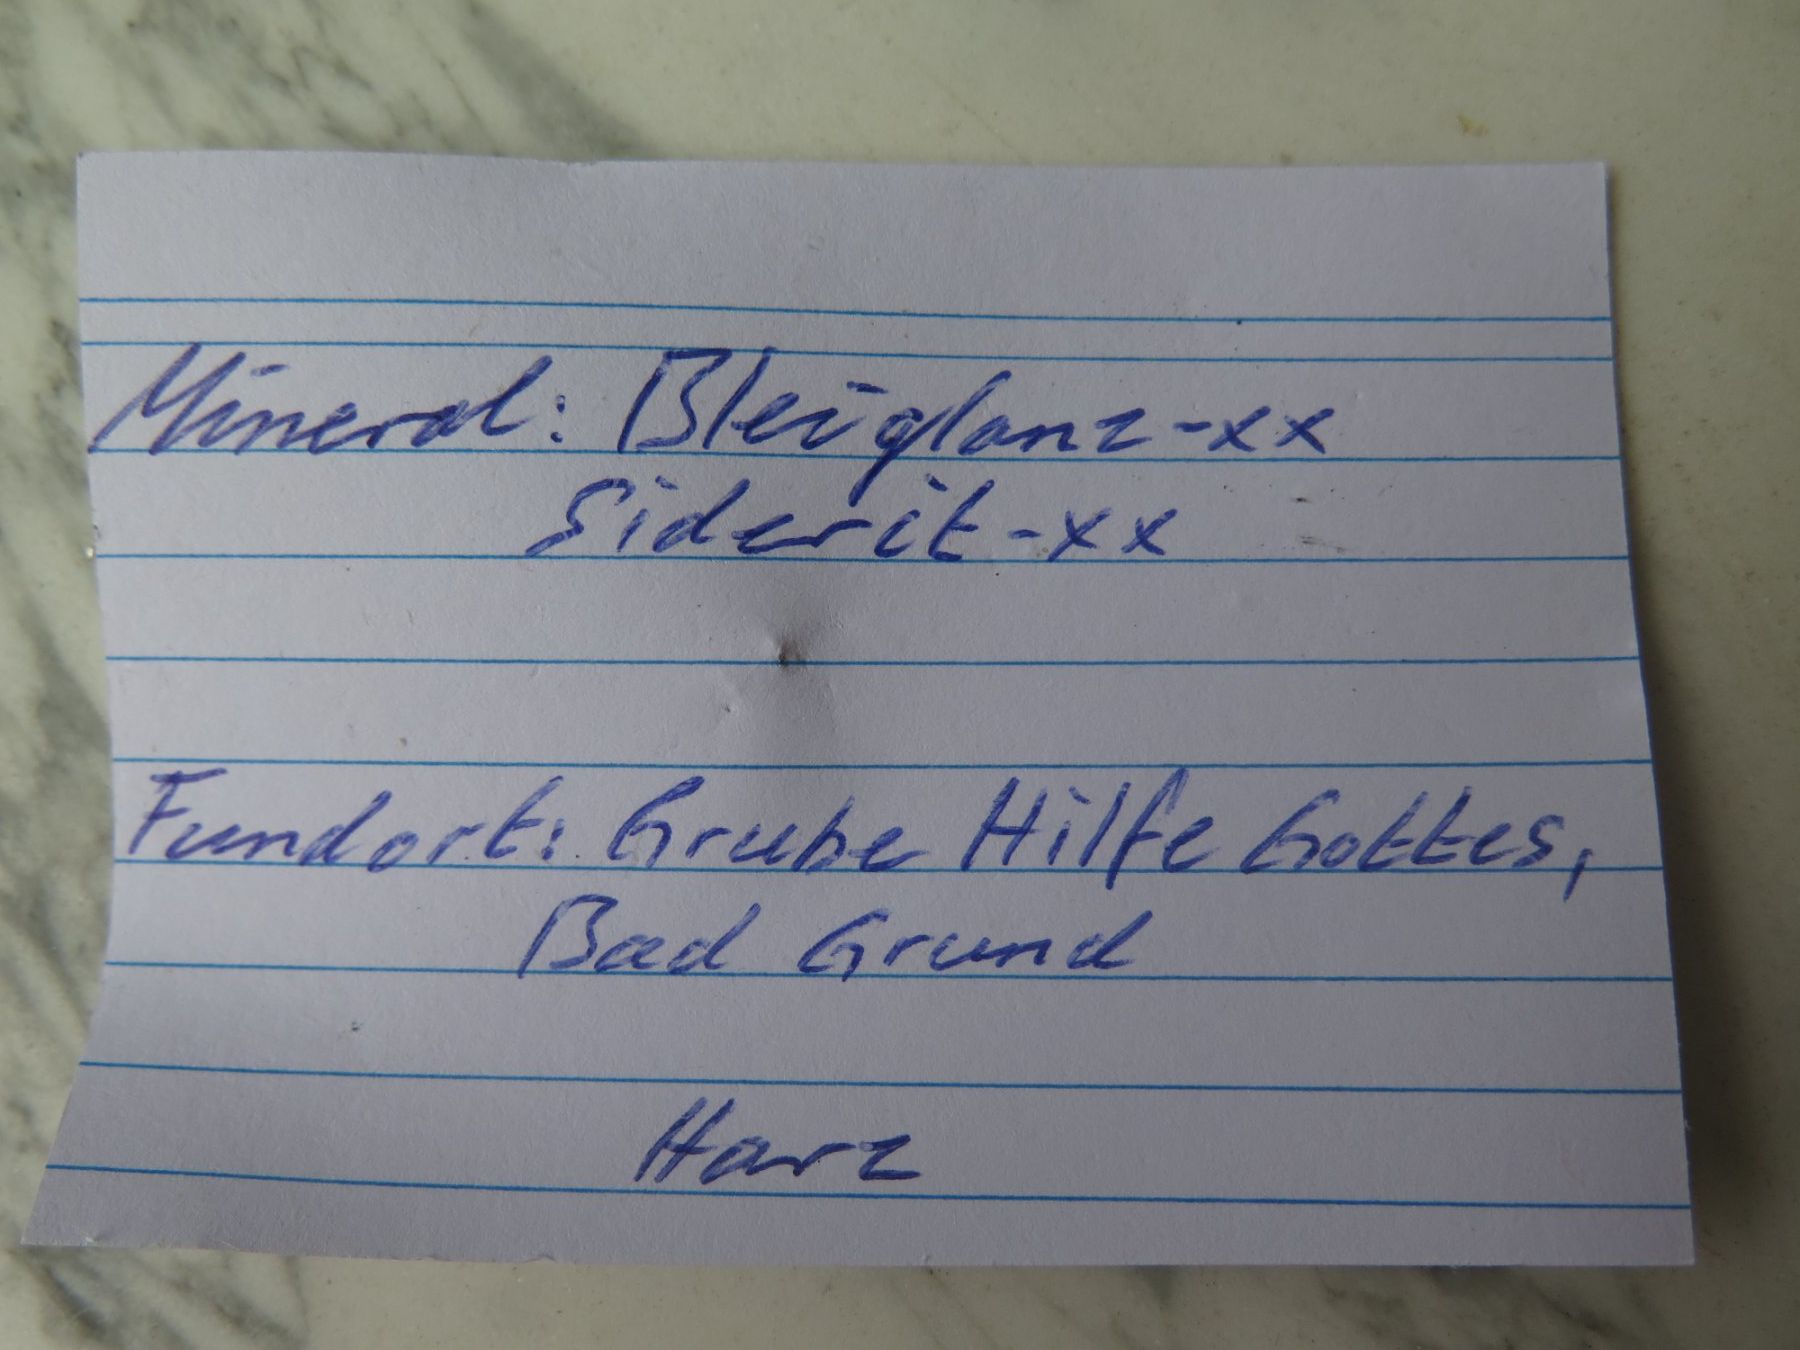 Mineral: Bleiglanz-xx
Siderit-xx
Fundort: Grube Hilfe Gottes,
Bad Grund
Harz